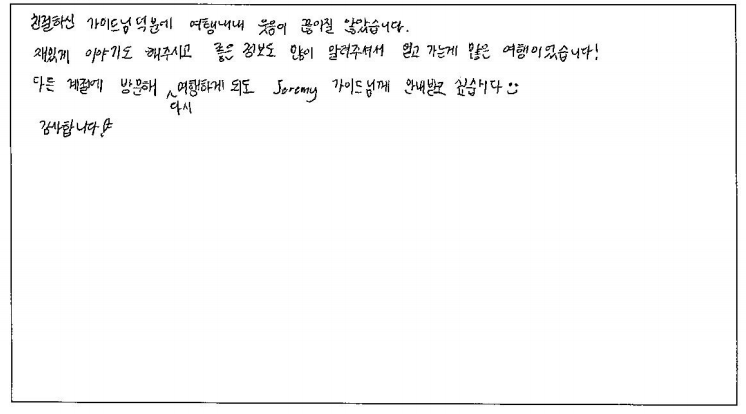 친절하신 가이드님 덕분에 여행내내 웃음이 끊이질 않았습니다.
재밌게 이야기도 해주시고 좋은 정보도 많이 알려주셔서 얻고 가는게 많은 여행이었습니다!
다른 계절에 방문해 다시 여행하게 되도 Jeremy 가이드님께 안내받고 싶습니다 :)
감사합니다!